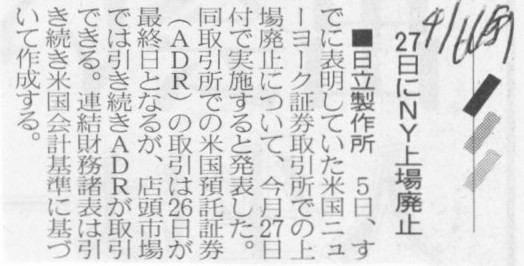 27日にNY上場廃止
■日立製作所　5日、す
でに表明していた米国ニュ
ーヨーク証券取引所での上
場廃止について、今月27日
付で実施すると発表した。
同取引所での米国預託証券
（ADR）の取引は26日が
最終日となるが、店頭市場
では引き続きADRが取引
できる。連結財務諸表は引
き続き米国会計基準に基づ
いて作成する。